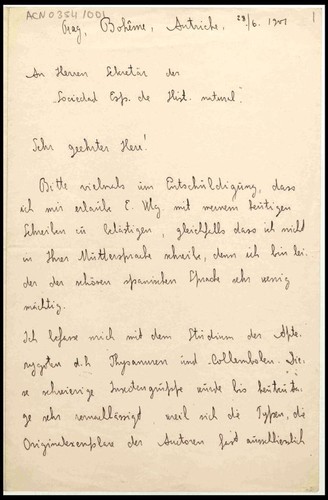 ACN0354/001
Prag, Bohême, Autriche, 29/6. 1901
1
An Herren Sekretär der
"Sociedad Esp. de Hist. natural"
Sehr geehrter Herr!
Bitte vielmals um Entschuldigung, dass
ich mir erlaube E. Wlg mit meinem heutigen
Schreiben zu belästigen, gleichfalls dass ich nicht
in Ihrer Muttersprache schreibe, denn ich bin lei-
der der schönen spanischen Sprache sehr wenig
mächtig.
Ich befasse mich mit dem Studium der Apte-
rygoten d.h. Thysanuren und Collembolen. Die-
se schwierige Insectengruppe wurde bis heututa-
ge sehr vernachlässigt weil sich die Typen, die
Originalexemplare der Autoren fast ausschliesslich